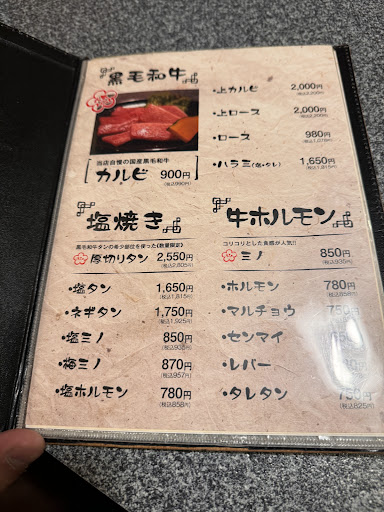 黒毛和牛
・上カルビ 2,000円
(税込2,200円)
・上ロース 2,000円
(税込2,200円)
・ロース 980円
(税込1,078円)
・ハラミ(塩・タレ) 1,650円
(税込1,815円)
当店自慢の国産黒毛和牛
カルビ 900円
(税込990円)
塩焼き
黒毛和牛タンの希少部位を使った《数量限定》
厚切りタン 2,550円
(税込2,805円)
・塩タン 1,650円
(税込1,815円)
・ネギタン 1,750円
(税込1,925円)
・塩ミノ 850円
(税込935円)
・梅ミノ 870円
(税込957円)
・塩ホルモン 780円
(税込858円)
牛ホルモン
コリコリとした食感が人気!!
ミノ 850円
(税込935円)
・ホルモン 780円
(税込858円)
・マルチョウ
・センマイ
・レバー
・タレタン 750円
(税込825円)